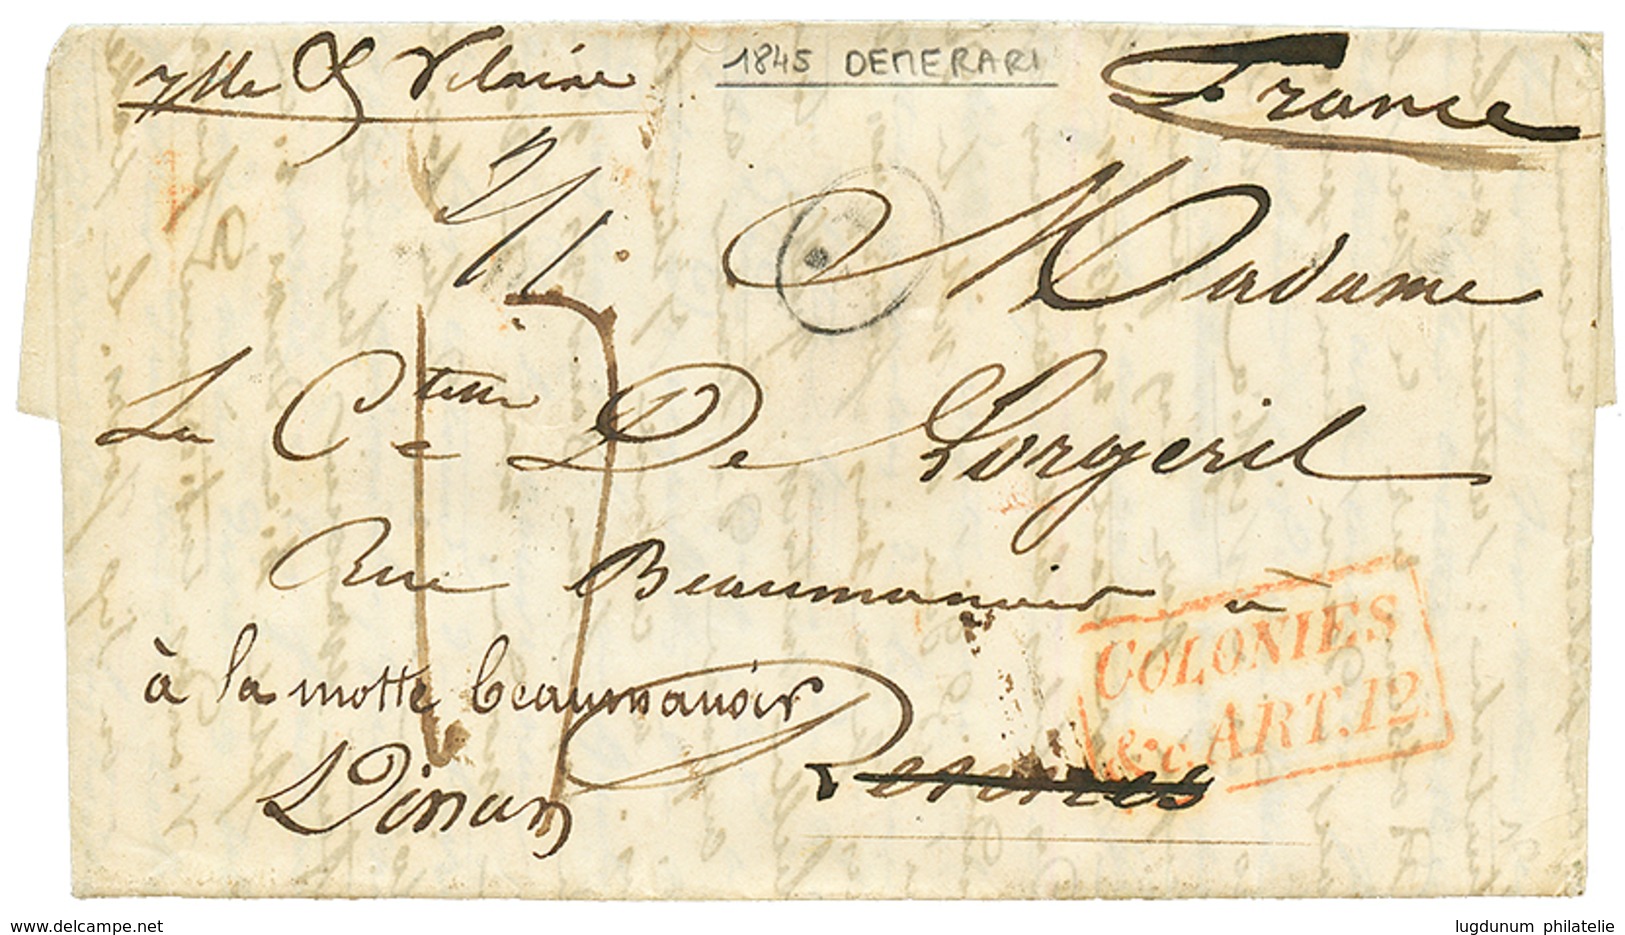 1845 DEMERARI
Ille & Vilaine
France
Madame
La Ctesse De Lorgeril
Rue Beaumanoir à
à la motte beaumanoir
Dinan
Rennes
COLONIES
&c. ART. 12.
www.delcampe.net
lugdunum philatelie